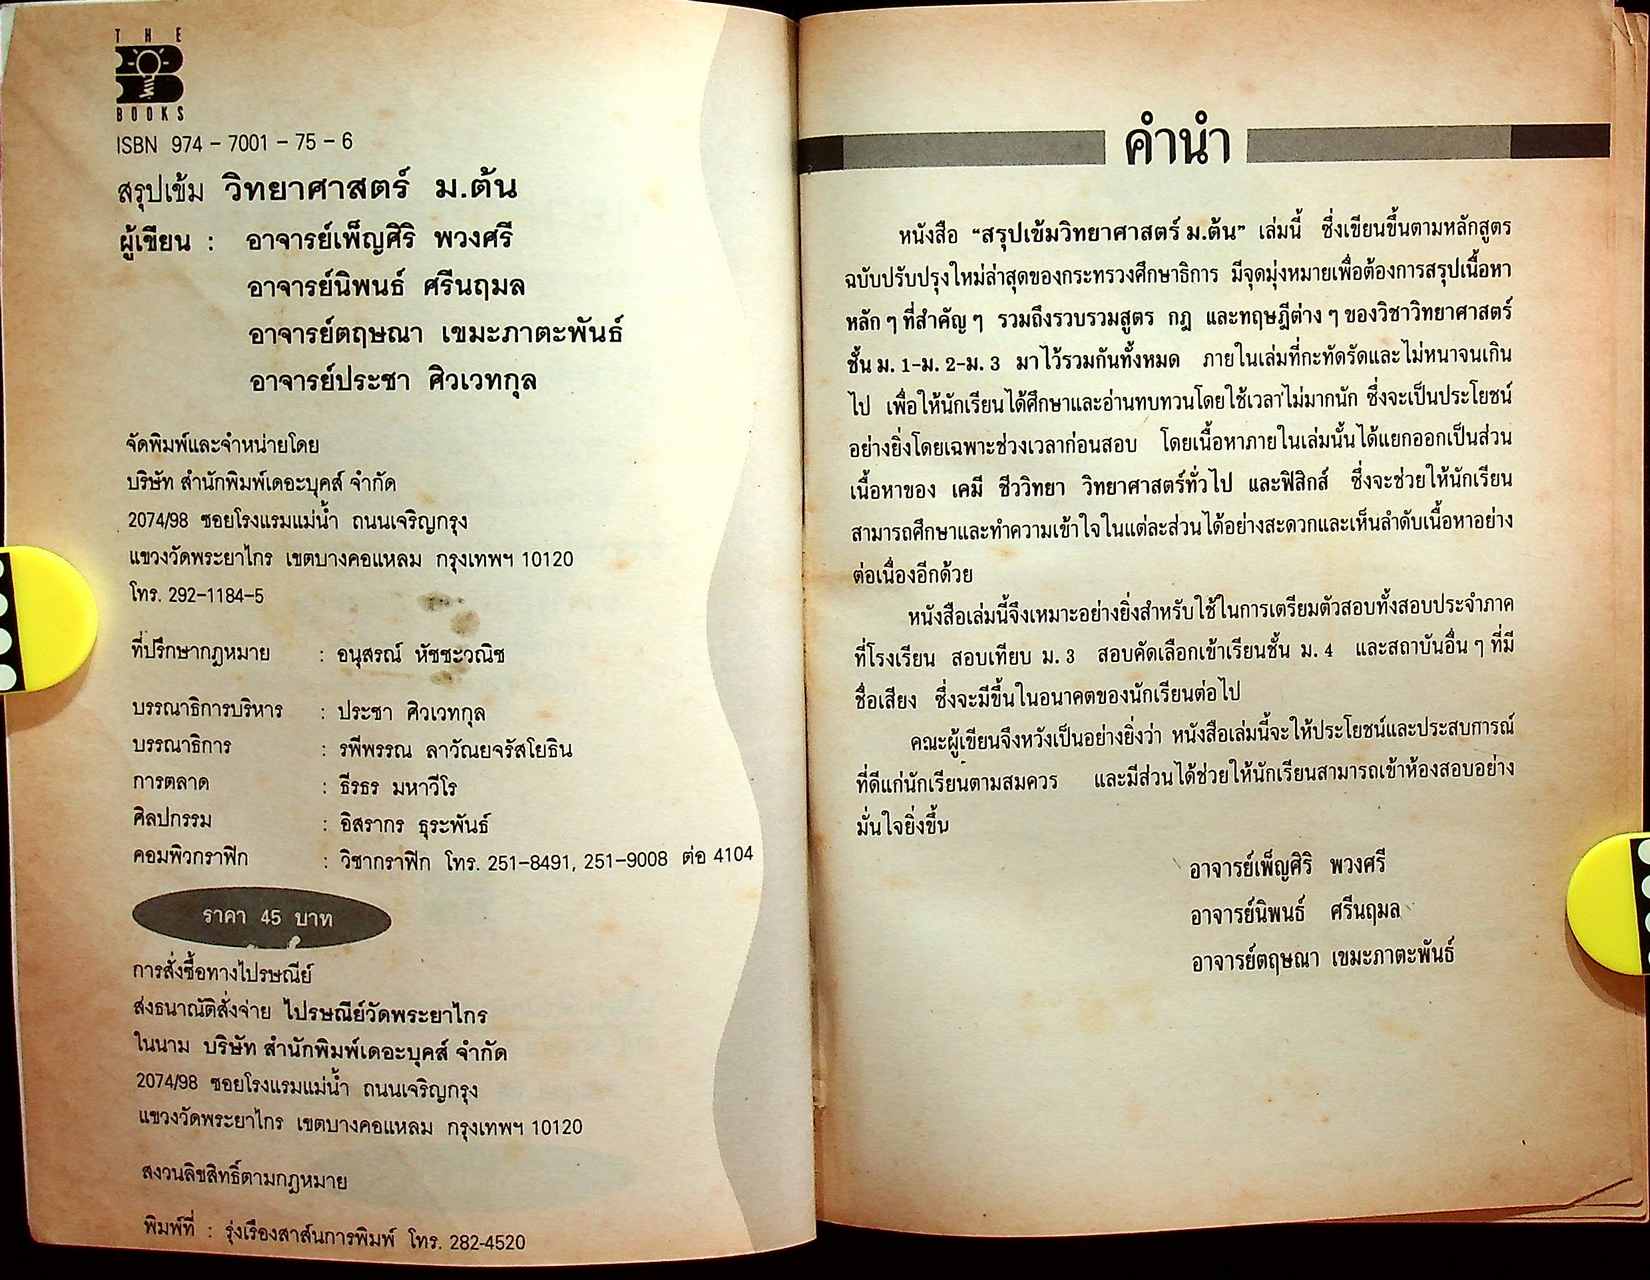 THE
BOOKS
ISBN 974-7001-75-6
สรุปเข้ม วิทยาศาสตร์ ม.ต้น
ผู้เขียน : อาจารย์เพ็ญศิริ พวงศรี
อาจารย์นิพนธ์ ศรีนฤมล
อาจารย์ตฤษณา เขมะภาตะพันธ์
อาจารย์ประชา ศิวเวทกุล
จัดพิมพ์และจำหน่ายโดย
บริษัท สำนักพิมพ์เดอะบุคส์ จำกัด
2074/98 ซอยโรงแรมแม่น้ำ ถนนเจริญกรุง
แขวงวัดพระยาไกร เขตบางคอแหลม กรุงเทพฯ 10120
โทร. 292-1184-5
ที่ปรึกษากฎหมาย : อนุสรณ์ หัชชะวณิช
บรรณาธิการบริหาร : ประชา ศิวเวทกุล
บรรณาธิการ : รพีพรรณ ลาวัณยจรัสโยธิน
การตลาด : ธีรธร มหาวีโร
ศิลปกรรม : อิสรากร ธุระพันธ์
คอมพิวกราฟิก : วิชากราฟิก โทร. 251-8491, 251-9008 ต่อ 4104
ราคา 45 บาท
การสั่งซื้อทางไปรษณีย์
ส่งธนาณัติสั่งจ่าย ไปรษณีย์วัดพระยาไกร
ในนาม บริษัท สำนักพิมพ์เดอะบุคส์ จำกัด
2074/98 ซอยโรงแรมแม่น้ำ ถนนเจริญกรุง
แขวงวัดพระยาไกร เขตบางคอแหลม กรุงเทพฯ 10120
สงวนลิขสิทธิ์ตามกฎหมาย
พิมพ์ที่ : รุ่งเรืองสาส์นการพิมพ์ โทร. 282-4520
คำนำ
หนังสือ "สรุปเข้มวิทยาศาสตร์ ม.ต้น" เล่มนี้ ซึ่งเขียนขึ้นตามหลักสูตร
ฉบับปรับปรุงใหม่ล่าสุดของกระทรวงศึกษาธิการ มีจุดมุ่งหมายเพื่อต้องการสรุปเนื้อหา
หลัก ๆ ที่สำคัญ ๆ รวมถึงรวบรวมสูตร กฎ และทฤษฎีต่าง ๆ ของวิชาวิทยาศาสตร์
ชั้น ม. 1-ม. 2-ม. 3 มาไว้รวมกันทั้งหมด ภายในเล่มที่กะทัดรัดและไม่หนาจนเกิน
ไป เพื่อให้นักเรียนได้ศึกษาและอ่านทบทวนโดยใช้เวลาไม่มากนัก ซึ่งจะเป็นประโยชน์
อย่างยิ่งโดยเฉพาะช่วงเวลาก่อนสอบ โดยเนื้อหาภายในเล่มนั้นได้แยกออกเป็นส่วน
เนื้อหาของ เคมี ชีววิทยา วิทยาศาสตร์ทั่วไป และฟิสิกส์ ซึ่งจะช่วยให้นักเรียน
สามารถศึกษาและทำความเข้าใจในแต่ละส่วนได้อย่างสะดวกและเห็นลำดับเนื้อหาอย่าง
ต่อเนื่องอีกด้วย
หนังสือเล่มนี้จึงเหมาะอย่างยิ่งสำหรับใช้ในการเตรียมตัวสอบทั้งสอบประจำภาค
ที่โรงเรียน สอบเทียบ ม. 3 สอบคัดเลือกเข้าเรียนชั้น ม. 4 และสถาบันอื่น ๆ ที่มี
ชื่อเสียง ซึ่งจะมีขึ้นในอนาคตของนักเรียนต่อไป
คณะผู้เขียนจึงหวังเป็นอย่างยิ่งว่า หนังสือเล่มนี้จะให้ประโยชน์และประสบการณ์
ที่ดีแก่นักเรียนตามสมควร และมีส่วนได้ช่วยให้นักเรียนสามารถเข้าห้องสอบอย่าง
มั่นใจยิ่งขึ้น
อาจารย์เพ็ญศิริ พวงศรี
อาจารย์นิพนธ์ ศรีนฤมล
อาจารย์ตฤษณา เขมะภาตะพันธ์